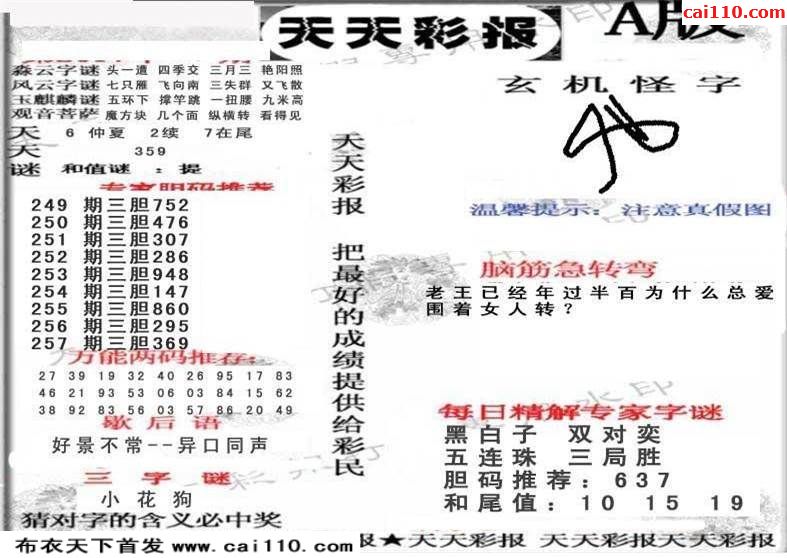 cai110.com
天天彩报
A版
森云字谜 头一遭 四季交 三月三 艳阳照
风云字谜 七只雁 飞向南 三失群 又飞散
玉麒麟谜 五环下 撑竿跳 一扭腰 九米高
观音菩萨 魔方块 几个面 纵横转 看得见
天 6 仲夏 2续 7在尾
天 359
谜 和值谜 : 提
专家胆码推荐
249 期三胆752
250 期三胆476
251 期三胆307
252 期三胆286
253 期三胆948
254 期三胆147
255 期三胆860
256 期三胆295
257 期三胆369
万能两码推存:
27 39 19 32 40 26 95 17 83
46 21 93 53 06 03 84 15 62
38 92 83 56 03 57 86 20 49
歇后语
好景不常--异口同声
三字谜
小花狗
猜对字的含义必中奖
天天彩报 把最好的成绩提供给彩民
玄机怪字
温馨提示: 注意真假图
脑筋急转弯
老王已经年过半百为什么总爱
围着女人转?
每日精解专家字谜
黑白子 双对弈
五连珠 三局胜
胆码推荐: 637
和尾值: 10 15 19
布衣天下首发 www.cai110.com
报★天天彩报 天天彩报天天彩报